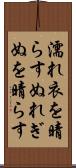 濡れ衣を晴
らすぬれぎ
ぬを晴らす